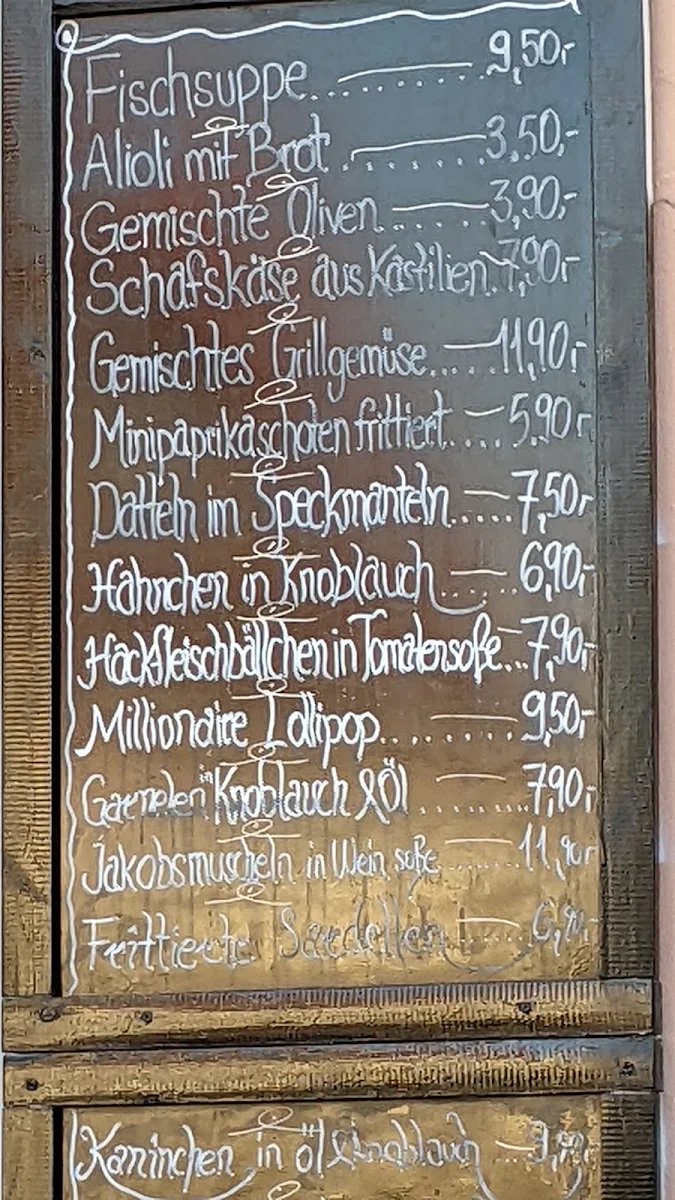 Fischsuppe 9,50,-
Alioli mit Brot 3,50,-
Gemischte Oliven 3,90,-
Schafskäse aus Kastilien 7,90,-
Gemischtes Grillgemüse 11,90,-
Minipaprikaschoten frittiert 5,90,-
Datteln im Speckmanteln 7,50,-
Hähnchen in Knoblauch 6,90,-
Hackfleischbällchen in Tomatensoße 7,90,-
Millionaire Lollipop 9,50,-
Garnelen in Knoblauch & Öl 7,90,-
Jakobsmuscheln in Wein soße 11,90,-
Frittierte Sardellen 6,90,-
Kaninchen in öl & Knoblauch